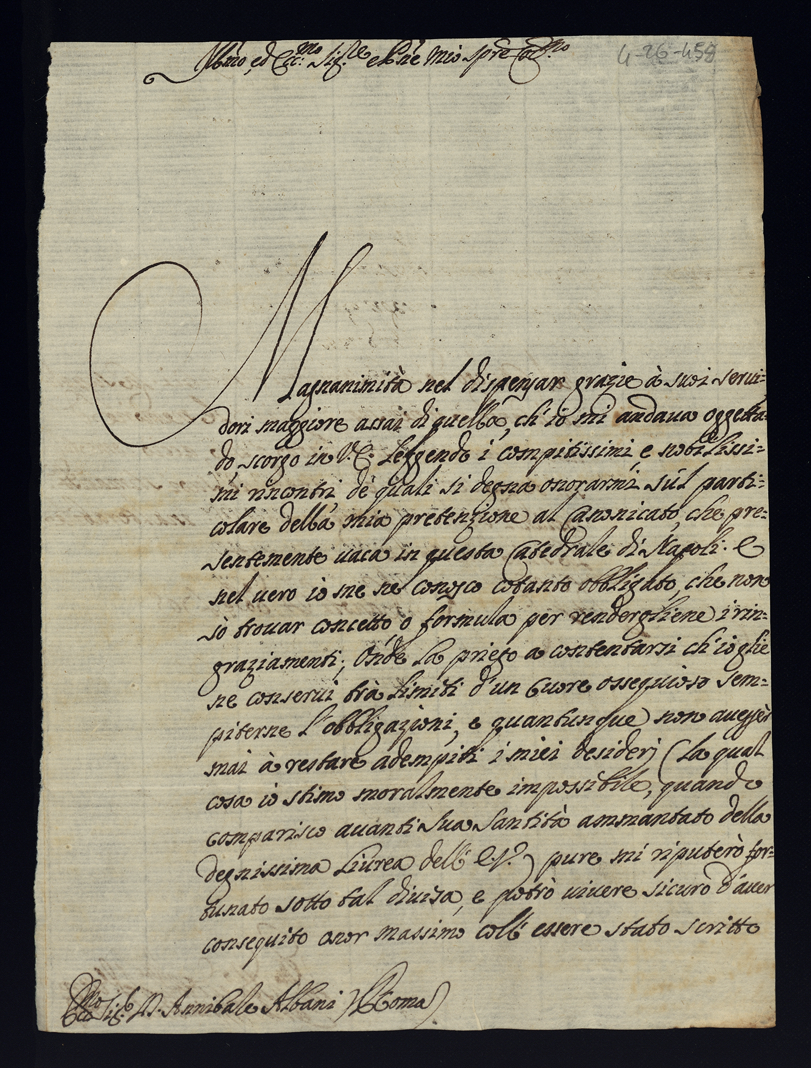 Ill.mo, ed Ecc.mo Sig.re e P.ne mio sp.re Co.mo
4-26-459
Magnanimità nel dispenzar grazie à suoi servi=
dori maggiore assai di quella, ch'io mi andava oggetta
do scorgo in V.E. Leggendo i compitissimi e nobilissi=
mi rincontri de quali si degna onorarmi sul parti=
colare della mia pretenzione al Canonicato, che pre=
sentemente vaca in questa Catedrale di Napoli. e
nel vero io me ne conosco cotanto obbligato, che non
sò trovar concetto o formula per rendergliene i rin=
graziamenti; Onde la priego a contentarsi ch'io glie
ne conservi trà limiti d'un Cuore ossequioso sem=
piterne l'obbligazioni, e quantunque non avesser
mai à restare adempiti i miei desiderj (la qual
cosa io stimo moralmente impossibile, quando
comparisco avanti Sua Santità ammantato della
degnissima Livrea dell'E.V.) pure mi riputerò for=
tunato sotto tal divisa, e potrò vivere sicuro d'aver
conseguito onor massimo coll'essere stato scritto
Ecc.mo Sig. D. Annibale Albani (Roma)